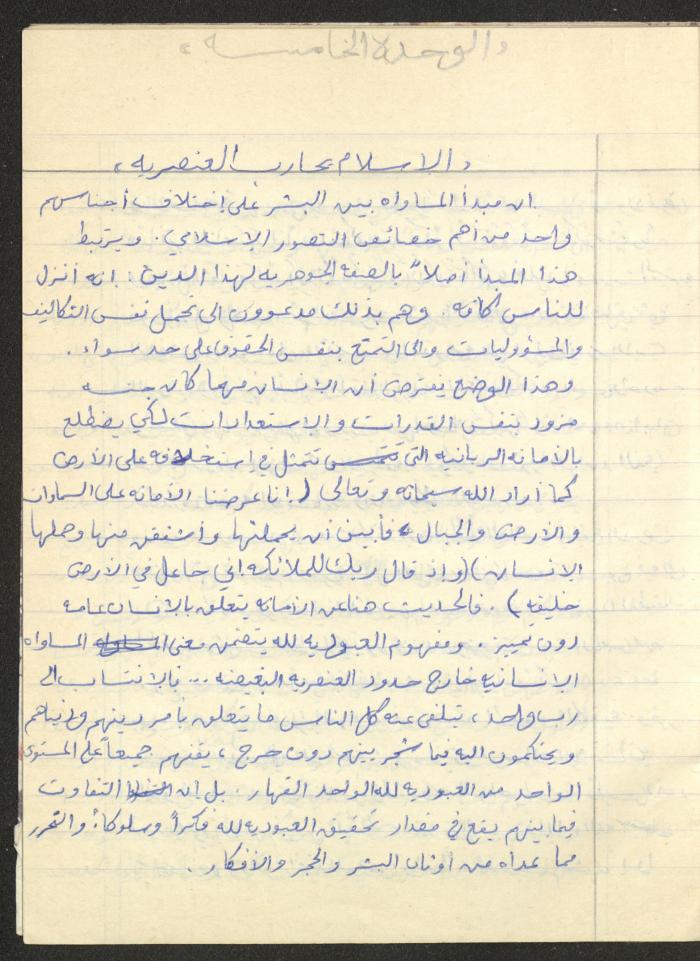 «الوحدة الخامسة»
«الاسلام يحارب العنصريه»
ان مبدأ المساواه بين البشر على إختلاف أجناسهم
واحد من أهم خصائص التصور الإسلامي. ويرتبط
هذا المبدأ أصلاً بالصفه الجوهريه لهذا الدين: انه أنزل
للناس كافه. وهم بذلك مدعوون الى تحمل نفس التكاليف
والمسؤوليات والى التمتع بنفس الحقوق على حد سواء.
وهذا الوضع يفترض أن الإنسان مهما كان جنسه
مزود بنفس القدرات والاستعدادات لكي يضطلع
بالأمانه الربانيه التي تتمثل في استخلافه على الأرض
كما أراد الله سبحانه وتعالى (إنا عرضنا الأمانه على السماوات
والأرض والجبال فأبين أن يحملنها وأشفقن منها وحملها
الانسان) (واذ قال ربك للملائكه إني جاعل في الأرض
خليفه). فالحديث هنا عن الأمانه يتعلق بالإنسان عامه
دون تمييز. ومفهوم العبوديه لله يتضمن معنى المساواه
الإنسانيه خارج حدود العنصريه البغيضه ... فالإنتساب الى
رب واحد، تتلقى عنه كل الناس ما يتعلق بامر دينهم ودنياهم
ويحتكمون اليه فيما شجر بينهم دون حرج، يضعهم جميعاً على المستوى
الواحد من العبوديه لله الواحد القهار. بل ان التفاوت
فيما بينهم يقع في مقدار تحقيق العبوديه لله فكراً وسلوكاً، والتحرر
مما عداه من أوثان البشر والحجر والأفكار.